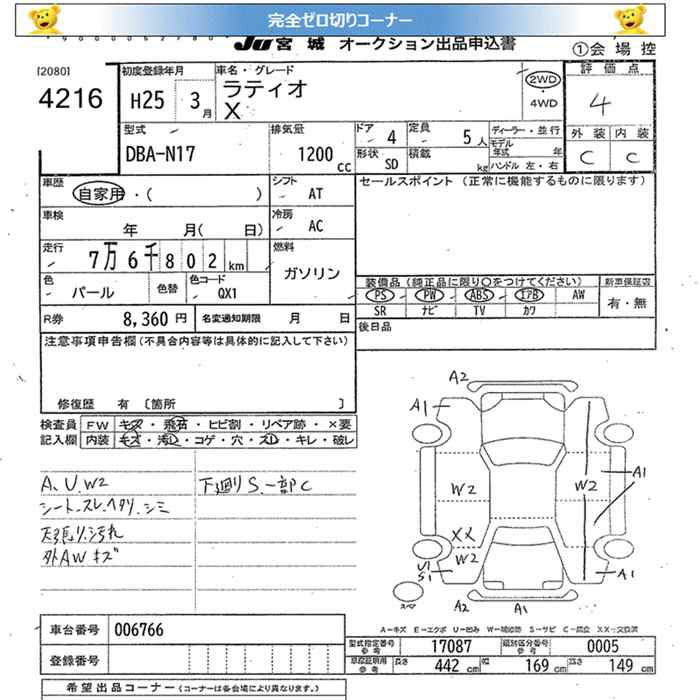 完全ゼロ切りコーナー
JU 宮城 オークション出品申込書
①会場控
[2080]
4216
初度登録年月
H25 3月
車名・グレード
ラティオ
X
2WD
・
4WD
評価点
4
外装 内装
C C
型式
DBA-N17
排気量
1200 cc
ドア 4
定員 5人
形状 SD
積載 kg
ディーラー・並行
モデル年式 年
ハンドル 左・右
車歴
自家用・( )
シフト AT
セールスポイント (正常に機能するものに限ります)
車検
年 月( 日)
冷房 AC
走行
7万6千802km
燃料
ガソリン
色
パール
色替
色コード
QX1
装備品(純正品に限り○をつけてください)
新車保証書
PS PW ABS エアB AW
有・無
SR ナビ TV カワ
R券 8,360円
名変通知期限 月 日
後日品
注意事項申告欄(不具合内容等は具体的に記入して下さい)
修復歴 有 〔箇所 〕
検査員記入欄
FW キズ・飛石・ヒビ割・リペア跡・×要
内装 キズ・汚レ・コゲ・穴・スレ・キレ・破レ
A、U、W2
シート、スレ、ヘタリ、シミ
天張り、汚れ
外AWキズ
下廻りS、一部C
A2
A1
W2
W2
A1
XX
W2
U1
S1
A1
スペア
A2
A1
A-キズ E-エクボ U-凹み W-補修跡 S-サビ C-腐食 XX-交換済
車台番号 006766
登録番号
型式指定番号 参考 17087
類別区分番号 参考 0005
車庫証明用 参考 長さ 442 cm 幅 169 cm 高さ 149 cm
希望出品コーナー(コーナーは各会場により異なります。)